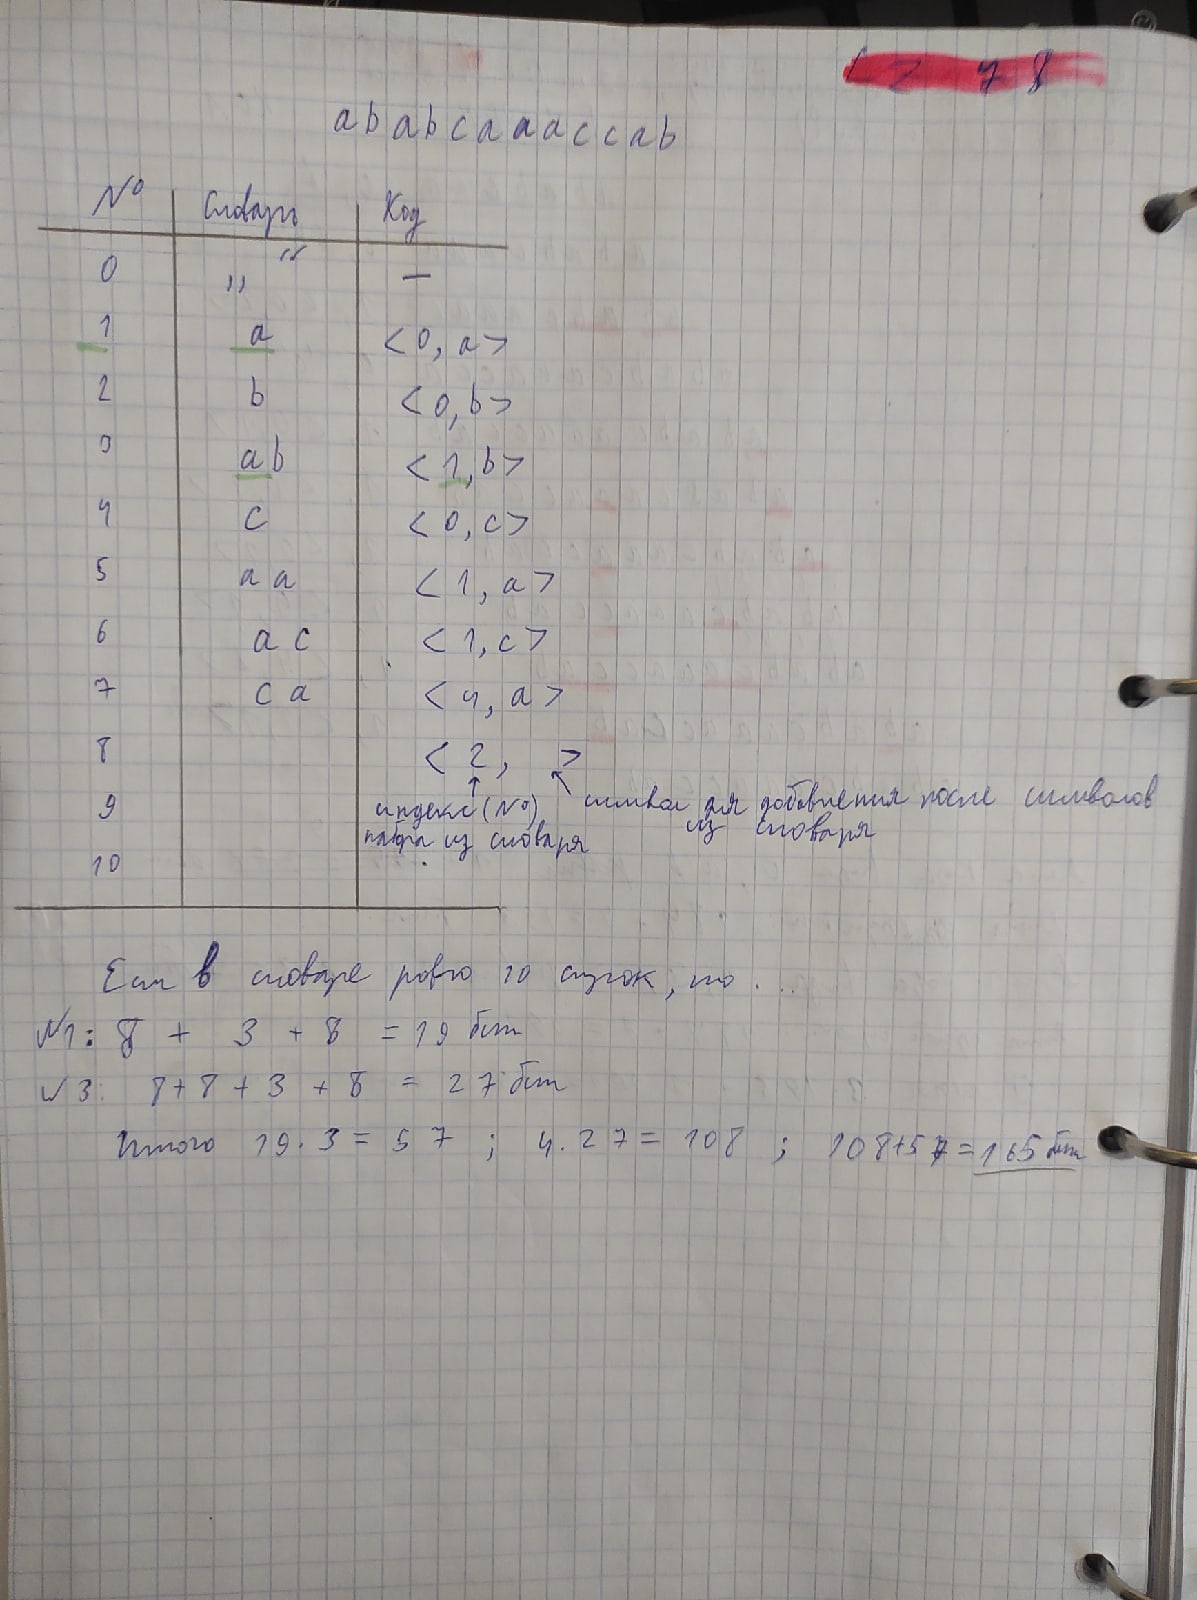 1 2 7 8
a b a b c a a a c c a b
№ Словарь Код
0 „ “ —
1 a <0, a>
2 b <0, b>
3 ab <1, b>
4 c <0, c>
5 a a <1, a>
6 a c <1, c>
7 c a <4, a>
8 <2, >
9 индекс (№) символ для добавления после символов
из словаря из словаря
10
Если в словаре ровно 10 строк, то ...
№1: 8 + 3 + 8 = 19 бит
№3: 8 + 8 + 3 + 8 = 27 бит
Итого 19·3 = 57 ; 4·27 = 108 ; 108+57 = 165 бит